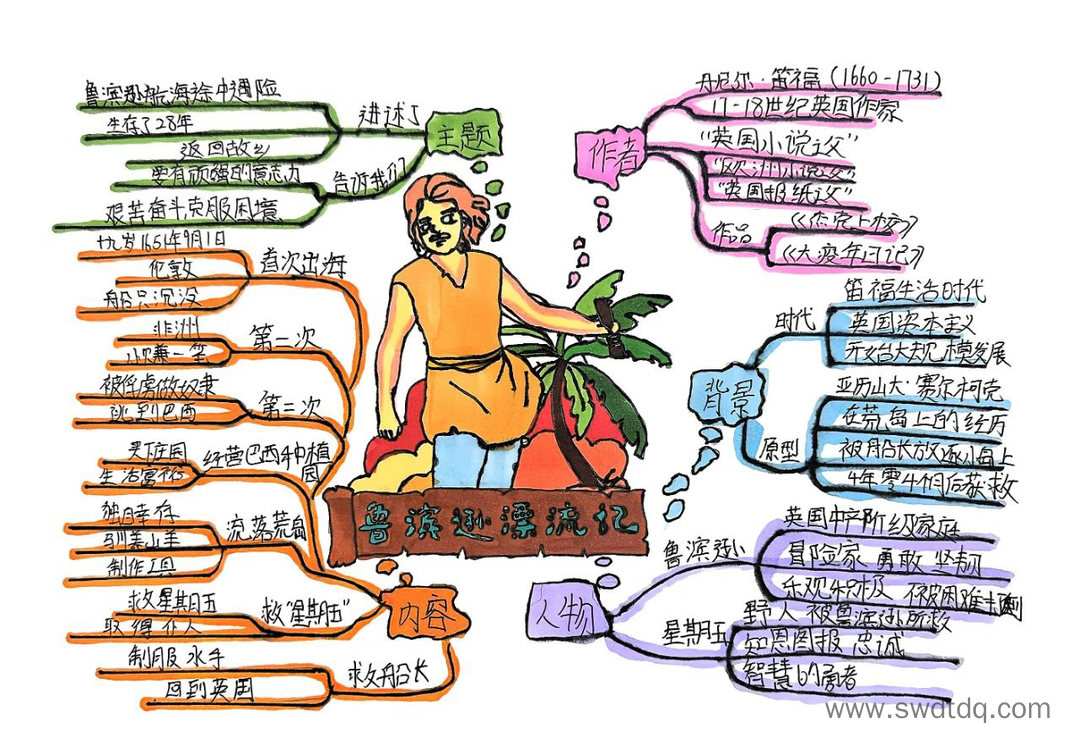 鲁滨逊漂流记
主题
讲述了
鲁滨逊航海途中遇险
生存了28年
返回故乡
告诉我们
要有顽强的意志力
艰苦奋斗克服困境
作者
丹尼尔·笛福(1660-1731)
17-18世纪英国作家
"英国小说之父"
"欧洲小说之父"
"英国报纸之父"
作品
《杰克上校》
《大疫年日记》
背景
时代
笛福生活时代
英国资本主义
开始大规模发展
原型
亚历山大·赛尔柯克
在荒岛上的经历
被船长放逐小岛上
4年零4个月后获救
人物
鲁滨逊
英国中产阶级家庭
冒险家 勇敢 坚韧
乐观积极 不被困难击倒
星期五
野人 被鲁滨逊所救
知恩图报 忠诚
智慧的勇者
内容
首次出海
十九岁1651年9月1日
伦敦
船只沉没
第二次
非洲
小赚一笔
第三次
被俘虏做奴隶
逃到巴西
经营巴西种植园
买下庄园
生活富裕
流落荒岛
独自幸存
驯养山羊
制作工具
救"星期五"
救星期五
取得仆人
救船长
制服水手
回到英国
www.swdtdq.com